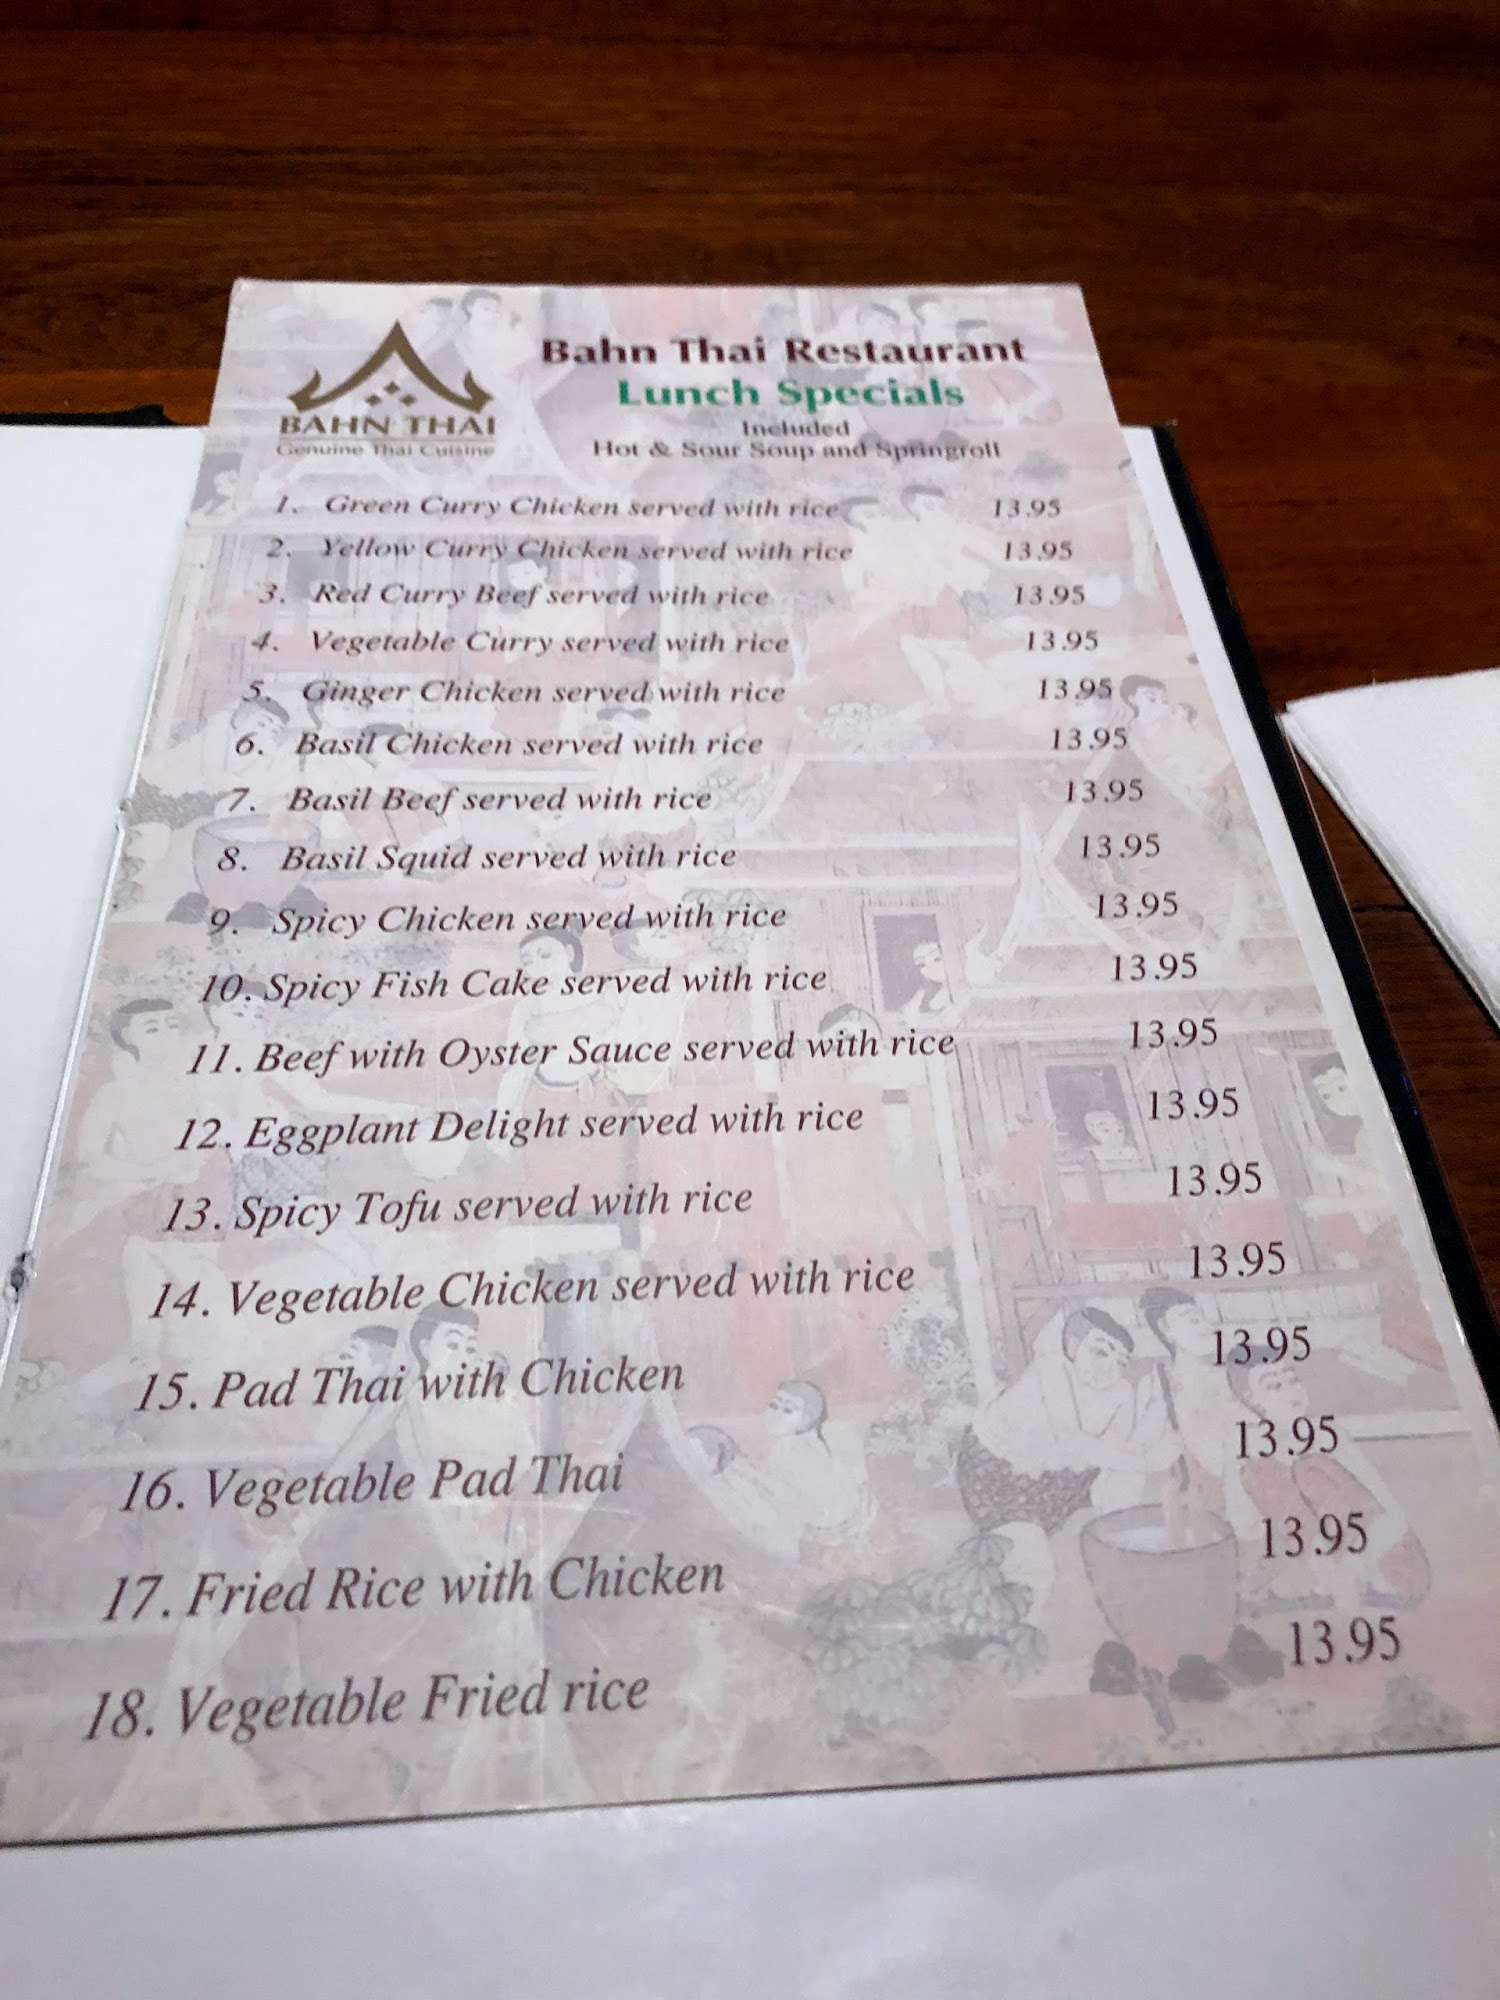 BAHN THAI
Genuine Thai Cuisine
Bahn Thai Restaurant
Lunch Specials
Included
Hot & Sour Soup and Springroll
1. Green Curry Chicken served with rice 13.95
2. Yellow Curry Chicken served with rice 13.95
3. Red Curry Beef served with rice 13.95
4. Vegetable Curry served with rice 13.95
5. Ginger Chicken served with rice 13.95
6. Basil Chicken served with rice 13.95
7. Basil Beef served with rice 13.95
8. Basil Squid served with rice 13.95
9. Spicy Chicken served with rice 13.95
10. Spicy Fish Cake served with rice 13.95
11. Beef with Oyster Sauce served with rice 13.95
12. Eggplant Delight served with rice 13.95
13. Spicy Tofu served with rice 13.95
14. Vegetable Chicken served with rice 13.95
15. Pad Thai with Chicken 13.95
16. Vegetable Pad Thai 13.95
17. Fried Rice with Chicken 13.95
18. Vegetable Fried rice 13.95